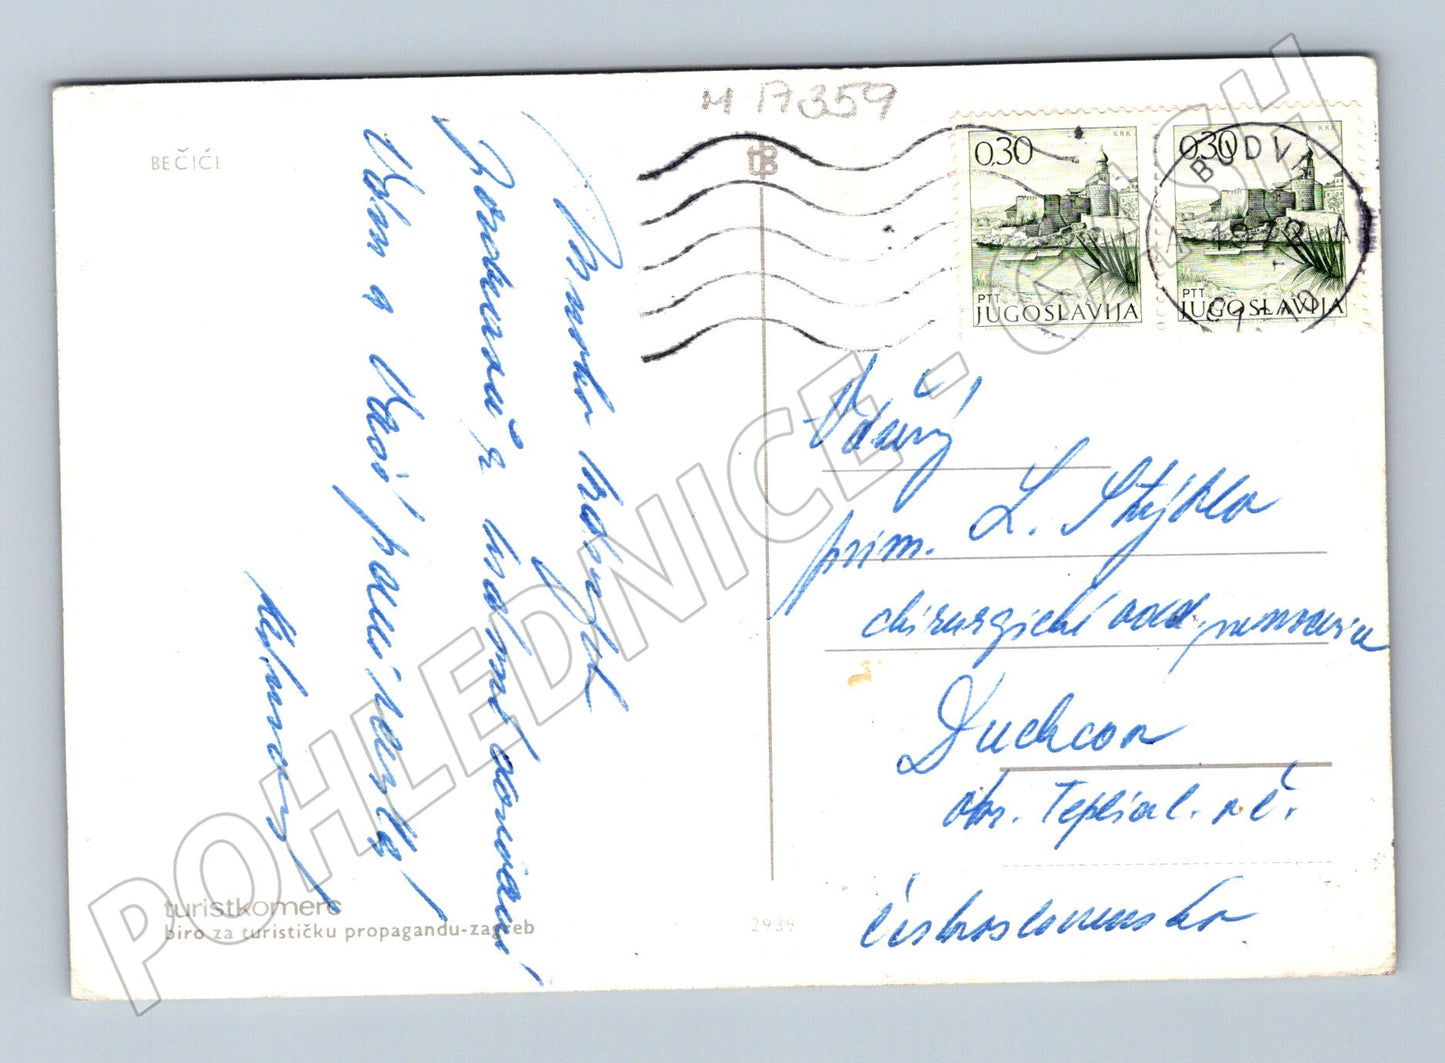 M 17359
BEČIĆI
Mnoho krásných
pozdravů z krásné dovolené
Vám a Vaší paní zasílá
tB
0.30
KRK
PTT
JUGOSLAVIJA
0.30
KRK
PTT
JUGOSLAVIJA
BUDVA
Vážený
prim. L. Stýblo
chirurgické odd. nemocnice
Duchcov
okr. Teplice l. n. č.
Československo
turistkomerc
biro za turističku propagandu-zagreb
2939
POHLEDNICE - CASH